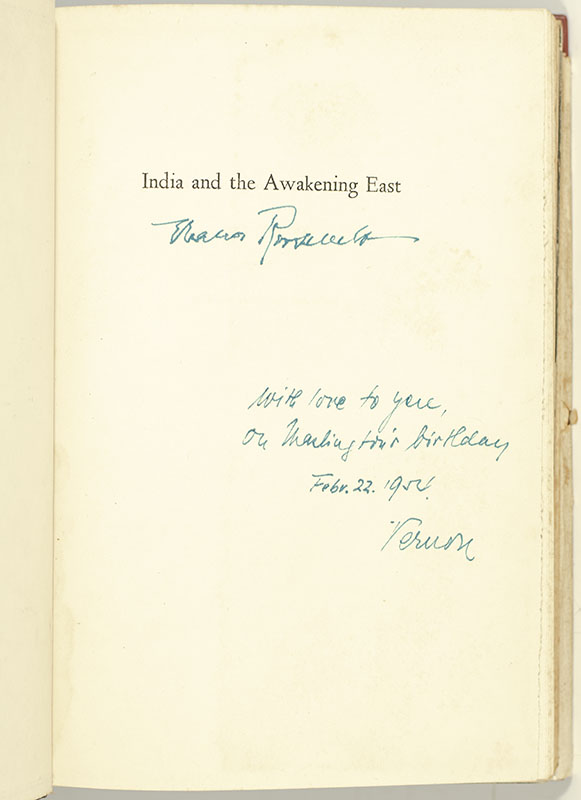 India and the Awakening East
Eleanor Roosevelt
With love to you,
on Washington's birthday
Febr. 22. 1954.
Vernon